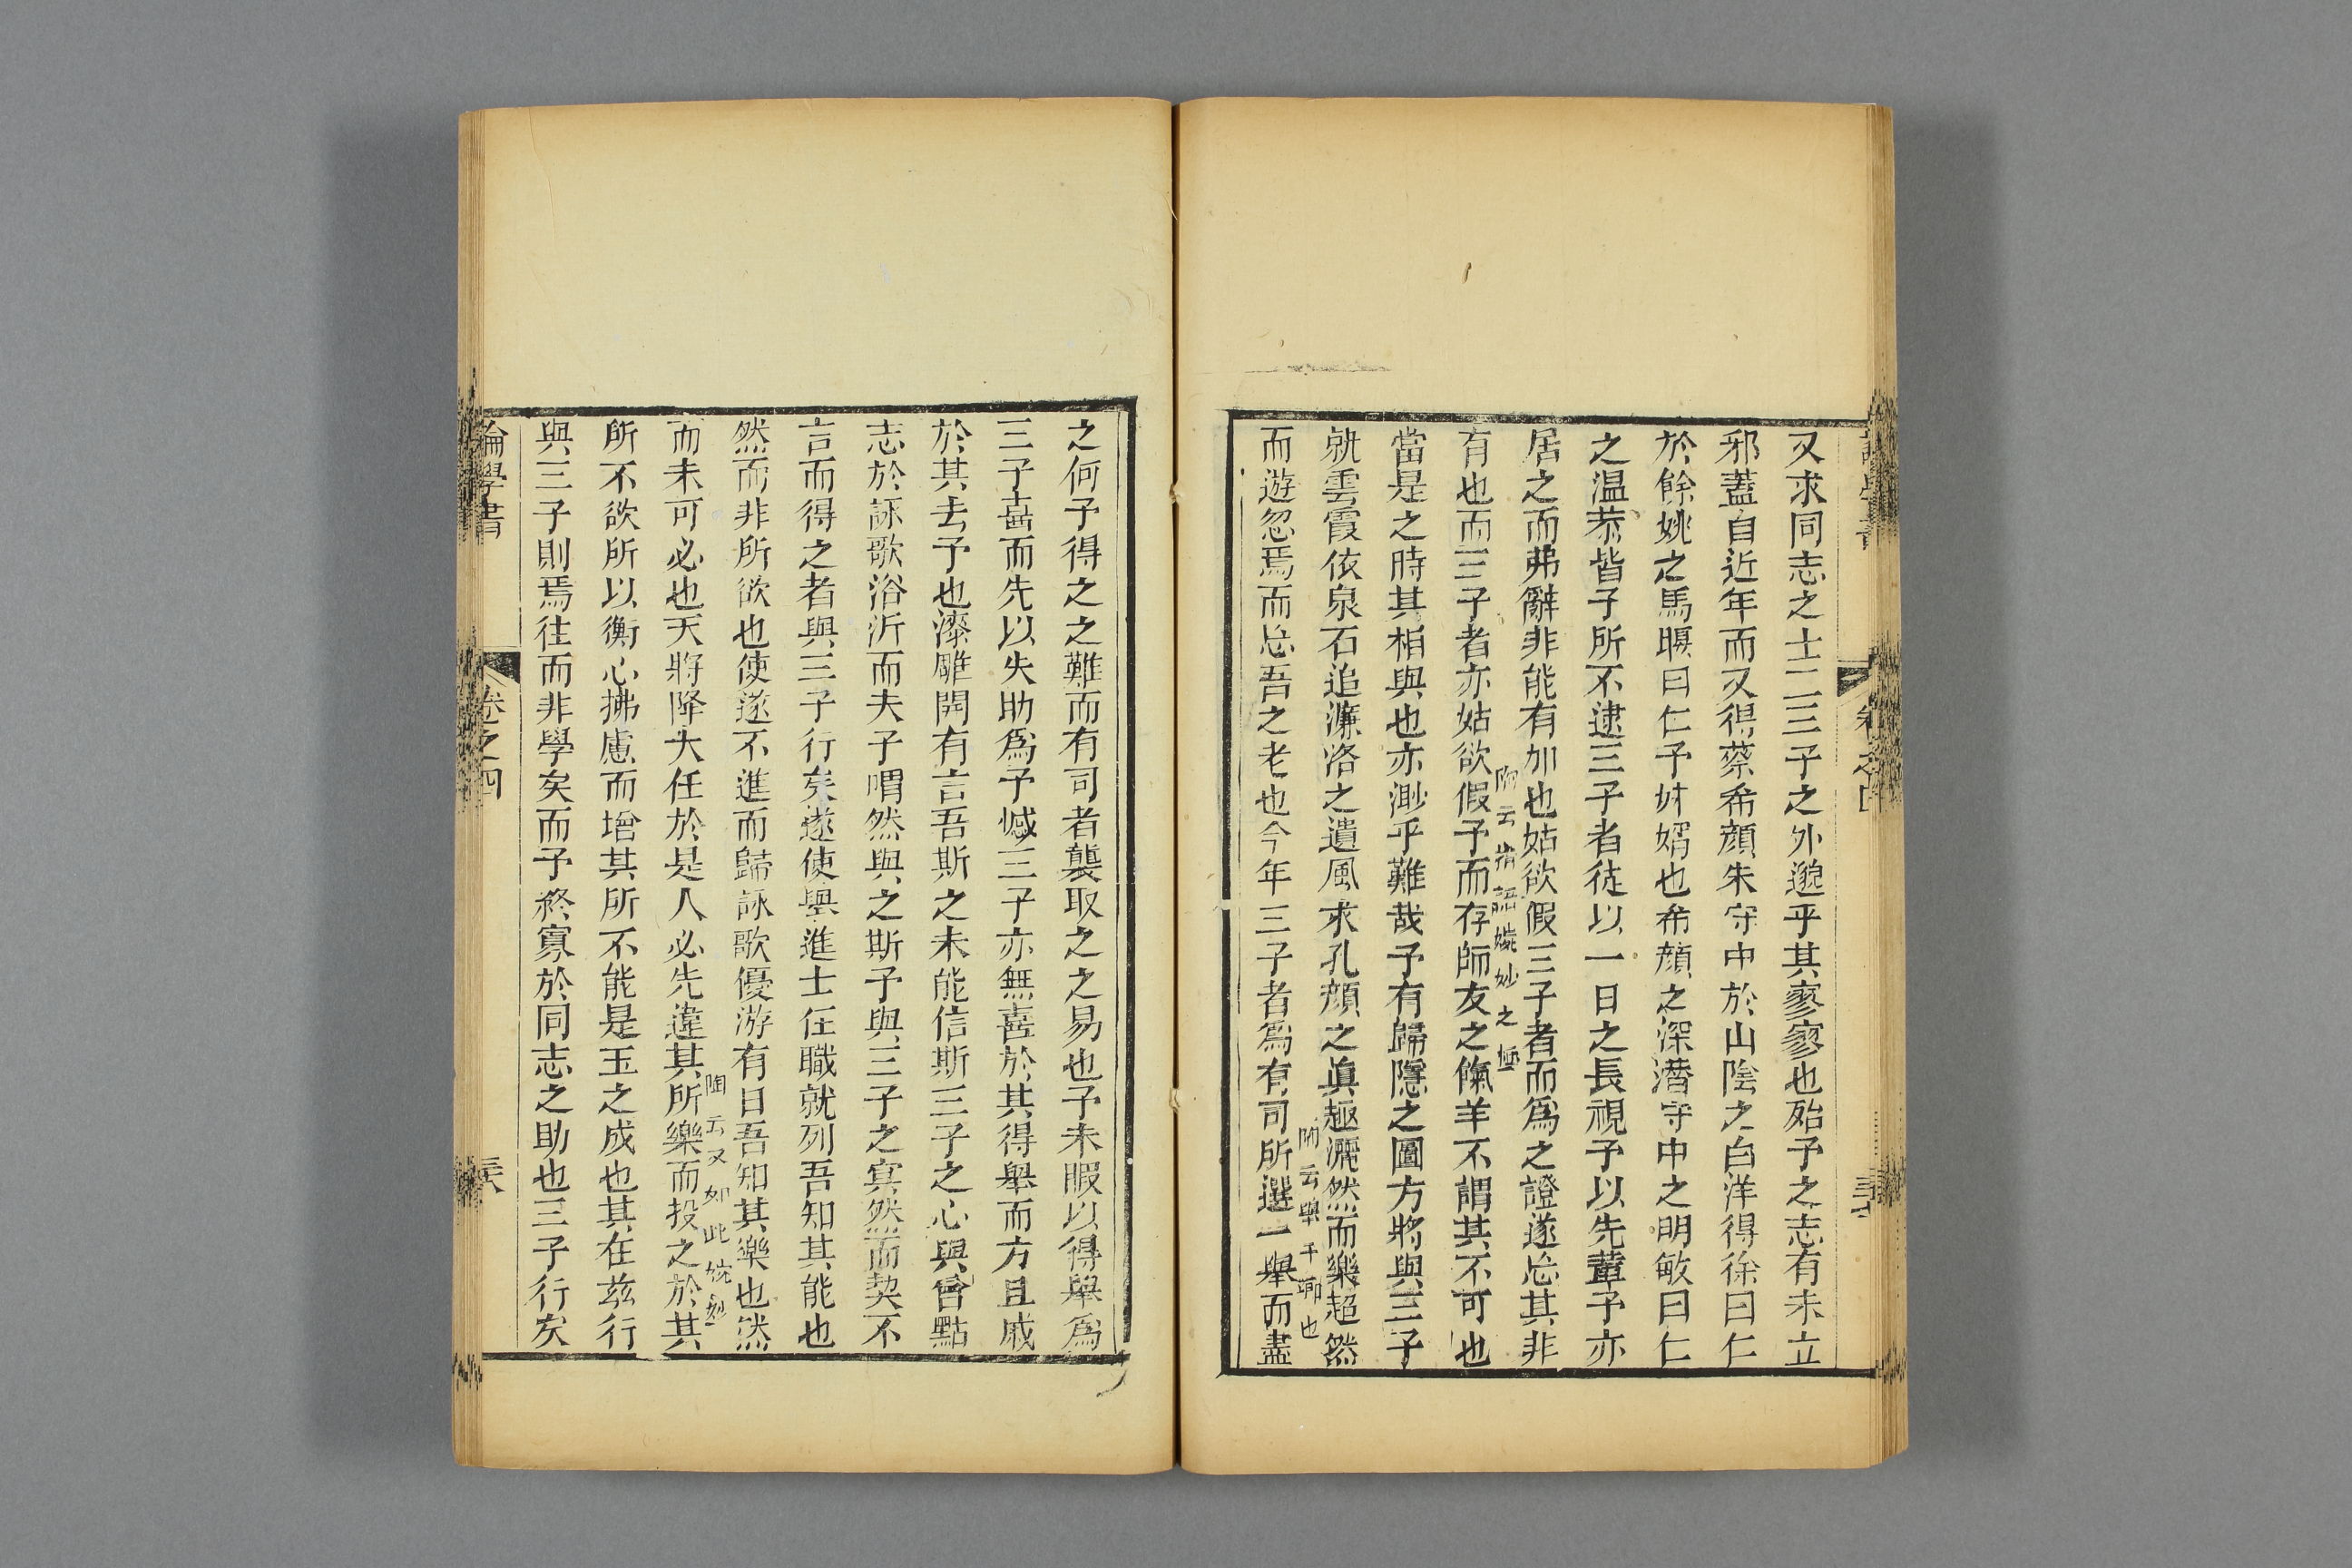 又求同志之士二三子之外邈乎其寥寥也殆予之志有未立
邪蓋自近年而又得蔡希顏朱守中於山陰之白洋得徐曰仁
於餘姚之馬堰曰仁予妹婿也希顏之深潛守中之明敏曰仁
之温恭皆予所不逮三子者徒以一日之長視予以先輩予亦
居之而弗辭非能有加也姑欲假三子者而爲之證遂忘其非
有也而三子者亦姑欲假予而存師友之餼羊不謂其不可也
陶云措語婉妙之極
當是之時其相與也亦渺乎難哉予有歸隱之圖方將與三子
就雲霞依泉石追濂洛之遺風求孔顏之眞趣灑然而樂超然
而遊忽焉而忘吾之老也今年三子者爲有司所選一舉而盡
陶云舉子鄉也
之何予得之之難而有司者襲取之之易也予未暇以得舉爲
三子喜而先以失助爲予憾三子亦無喜於其得舉而方且戚
於其去予也漆雕開有言吾斯之未能信斯三子之心與曾點
志於詠歌浴沂而夫子喟然與之斯予與三子之冥然而契不
言而得之者與三子行矣遂使舉進士任職就列吾知其能也
然而非所欲也使遂不進而歸詠歌優游有日吾知其樂也然
而未可必也天將降大任於是人必先違其所樂而投之於其
陶云又如此婉妙
所不欲所以衡心拂慮而增其所不能是玉之成也其在茲行
與三子則焉往而非學矣而予終寡於同志之助也三子行矣
論學書
卷之四